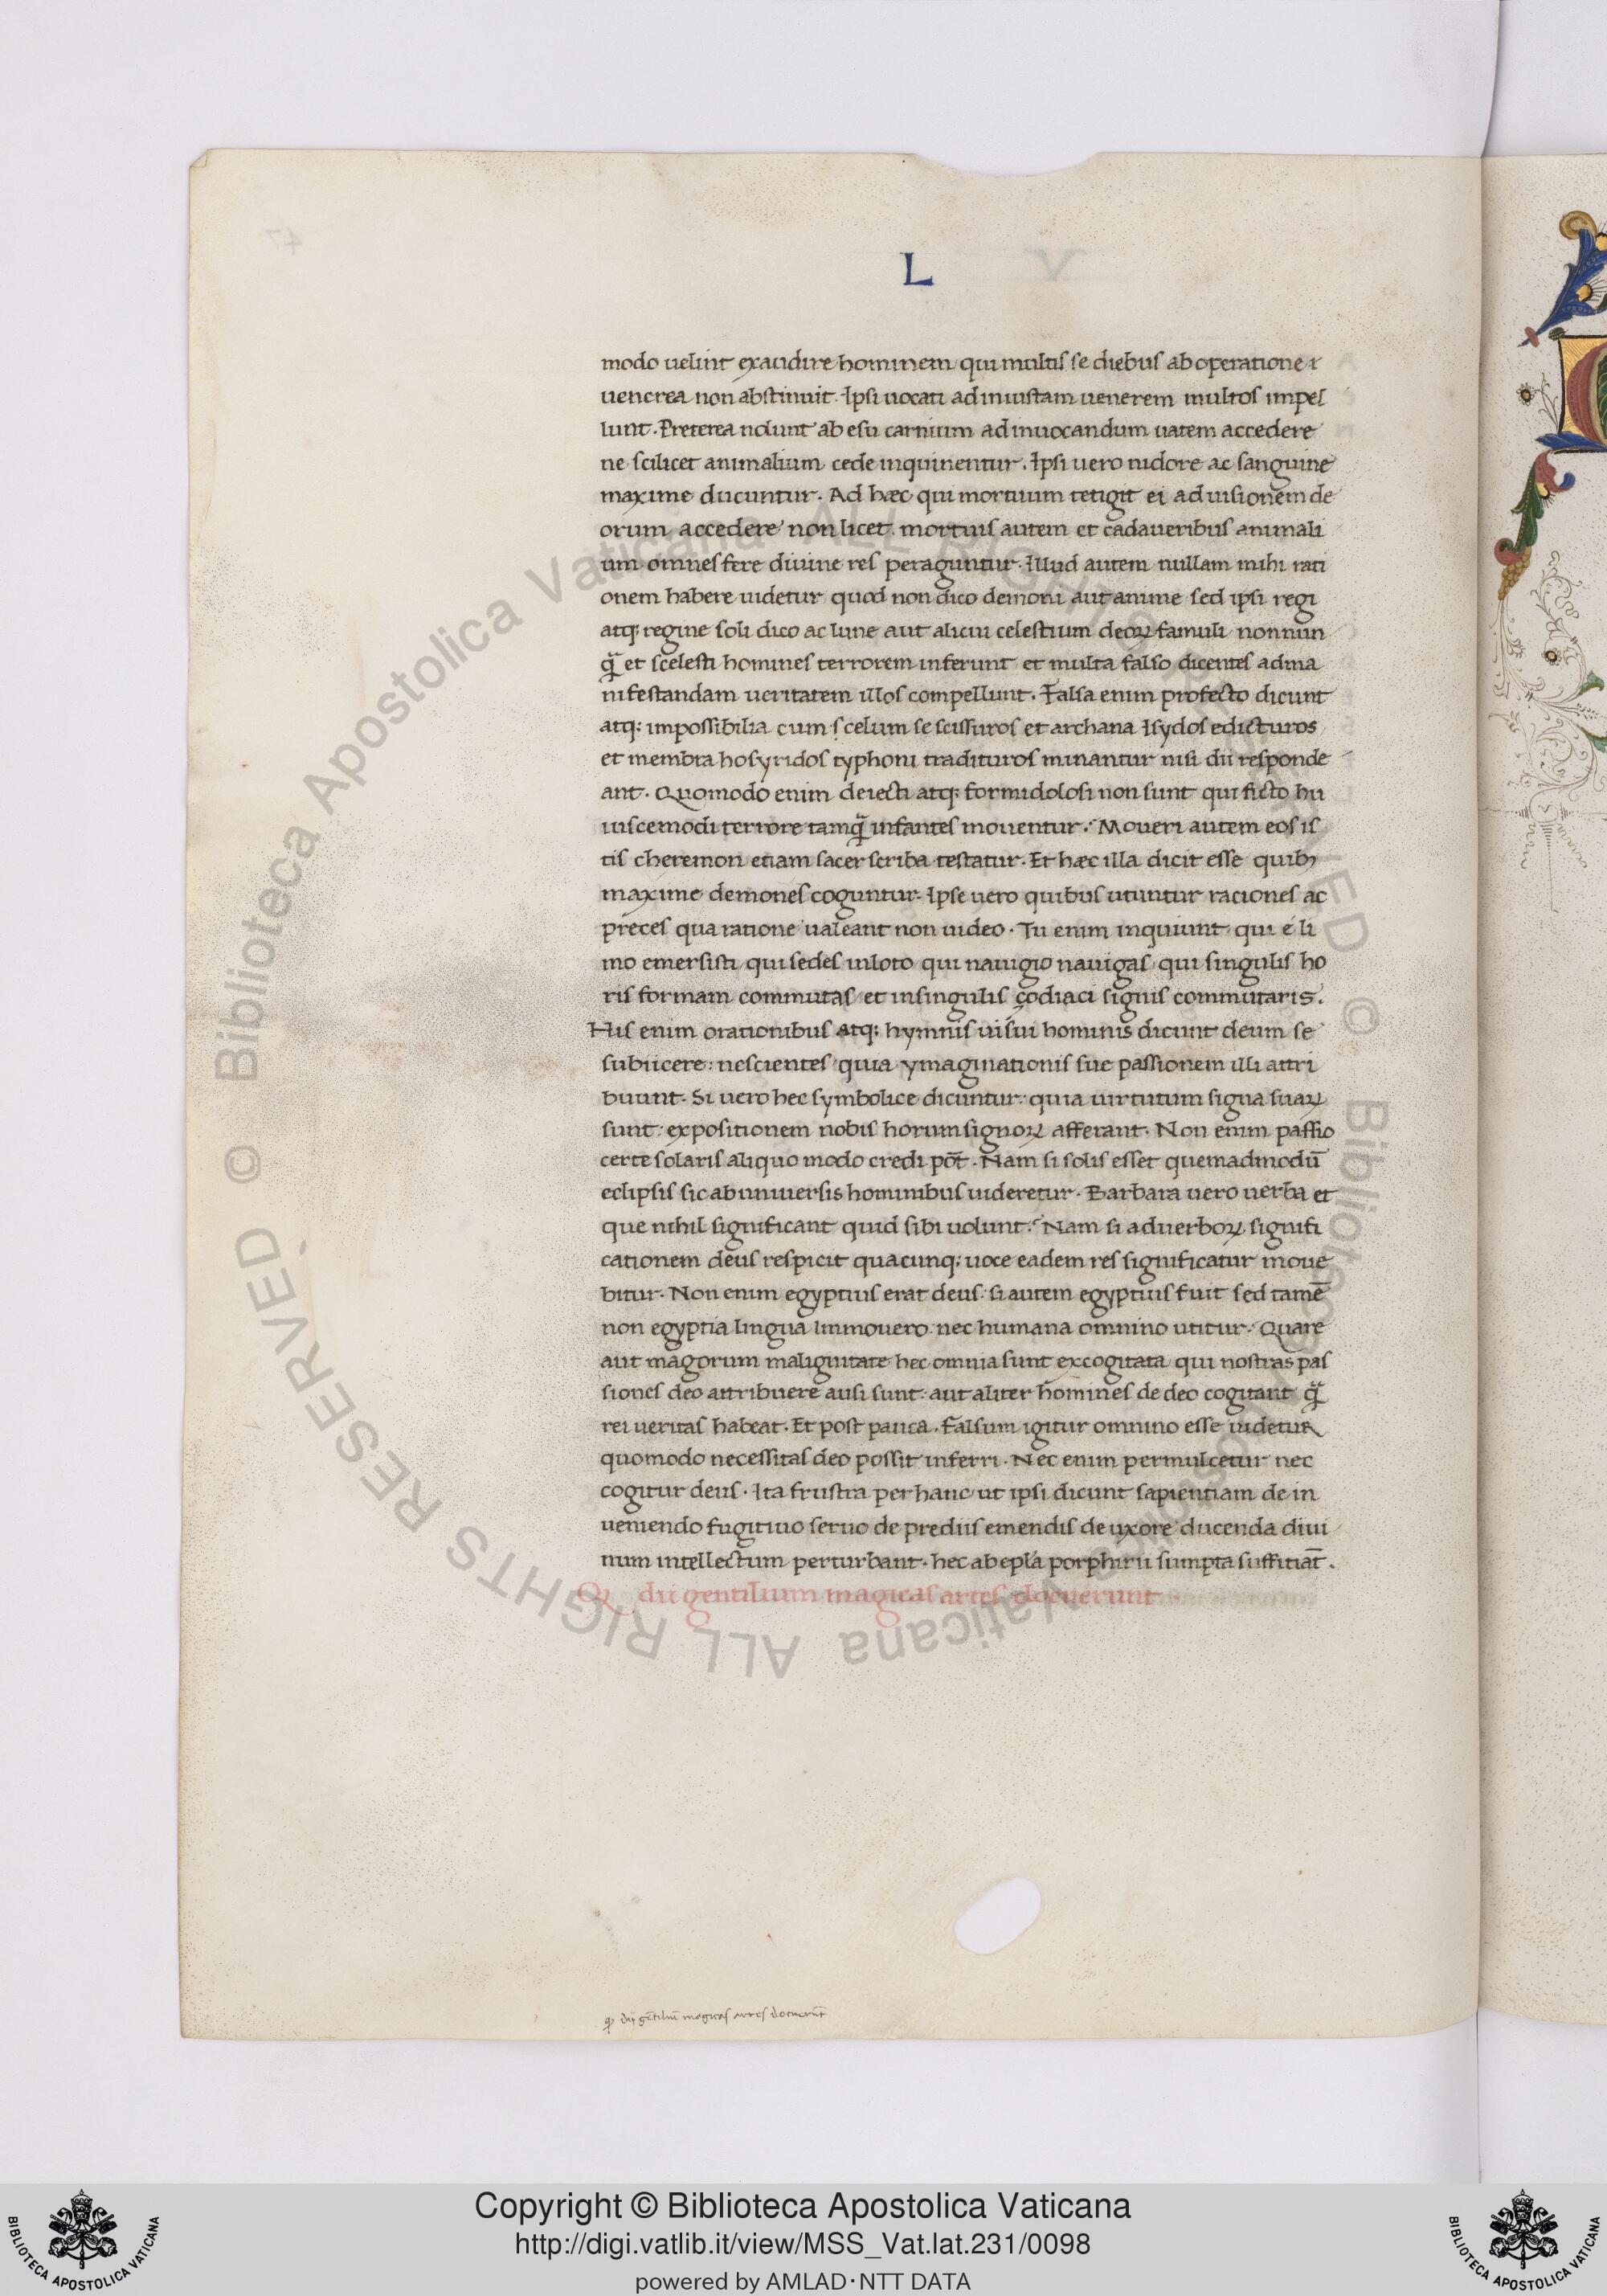 L
modo uelint exaudire hominem qui multis se diebus ab operatione
uenerea non abstinuit. Ipsi uocati ad iniustam uenerem multos impel
lunt. Preterea nolunt ab esu carnium ad inuocandum uatem accedere
ne scilicet animalium cede inquinentur. Ipsi uero nidore ac sanguine
maxime ducuntur. Ad hæc qui mortuum tetigit ei ad uisionem de
orum accedere non licet. mortuis autem et cadaueribus animali
um omnes fere diuine res peraguntur. Illud autem nullam mihi rati
onem habere uidetur quod non dico demoni aut anime sed ipsi regi
atq: regine soli dico ac lune aut alicui celestium deoꝝ famuli nonnun
q̃ et scelesti homines terrorem inferunt et multa falso dicentes ad ma
nifestandam ueritatem illos compellunt. Falsa enim profecto dicunt
atq: impossibilia cum celum se scissuros et archana Isydos edicturos
et membra hosyridos typhoni tradituros minantur nisi dii responde
ant. Quomodo enim deiecti atq: formidolosi non sunt qui ficto hu
iuscemodi terrore tamq̃ infantes mouentur. Moueri autem eos is
tis cheremon etiam sacer scriba testatur. Et hæc illa dicit esse quibꝫ
maxime demones coguntur. Ipse uero quibus utuntur raciones ac
preces qua ratione ualeant non uideo. Tu enim inquiunt qui é li
mo emersisti qui sedes in loto qui nauigio nauigas qui singulis ho
ris formam commutas et in singulis çodiaci signis commutaris.
His enim orationibus atq: hymnis uisui hominis dicunt deum se
subiicere: nescientes quia ymaginationis sue passionem illi attri
buunt. Si uero hec symbolice dicuntur: quia uirtutum signa suaꝝ
sunt: expositionem nobis horum signoꝝ afferant. Non enim passio
certe solaris aliquo modo credi põt. Nam si solis esset quemadmodũ
eclipsis sic ab uniuersis hominibus uideretur. Barbara uero uerba et
que nihil significant quid sibi uolunt. Nam si ad uerboꝝ signifi
cationem deus respicit quacunq: uoce eadem res significatur moue
bitur. Non enim egyptius erat deus. si autem egyptius fuit sed tamẽ
non egyptia lingua immouero nec humana omnino utitur. Quare
aut magorum malignitate hec omnia sunt excogitata qui nostras pas
siones deo attribuere ausi sunt. aut aliter homines de deo cogitant q̃
rei ueritas habeat. Et post pauca. Falsum igitur omnino esse uidetur
quomodo necessitas deo possit inferri. Nec enim permulcetur nec
cogitur deus. Ita frustra per hanc ut ipsi dicunt sapientiam de in
ueniendo fugitiuo seruo de prediis emendis de uxore ducenda diui
num intellectum perturbant. hec ab epl̃a porphirii sumpta suffitiãt.
Q dii gentilium magicas artes docuerunt
ꝙ dij gẽtiliũ magicas artes docuerũt
© Biblioteca Apostolica Vaticana ALL RIGHTS RESERVED © Biblioteca Apostolica Vaticana ALL RIGHTS RESERVED
BIBLIOTECA APOSTOLICA VATICANA
Copyright © Biblioteca Apostolica Vaticana
http://digi.vatlib.it/view/MSS_Vat.lat.231/0098
powered by AMLAD·NTT DATA
BIBLIOTECA APOSTOLICA VATICANA